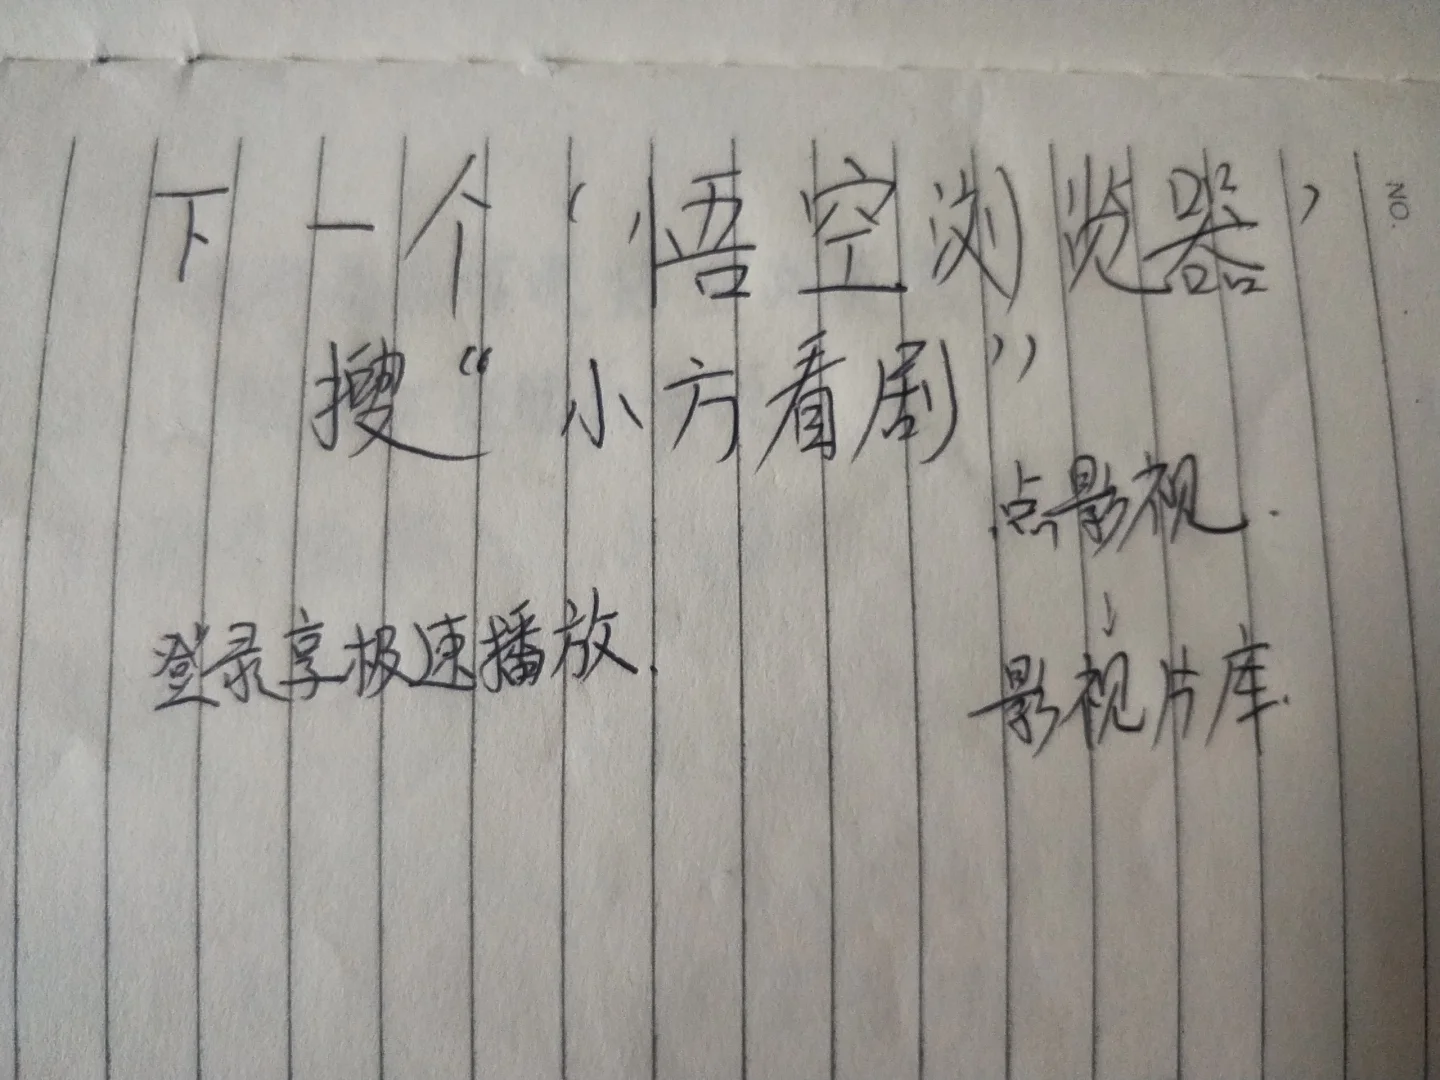 NO.
下一个‘悟空浏览器’
搜“小方看剧”
点影视.
↓
登录享极速播放.
影视片库.